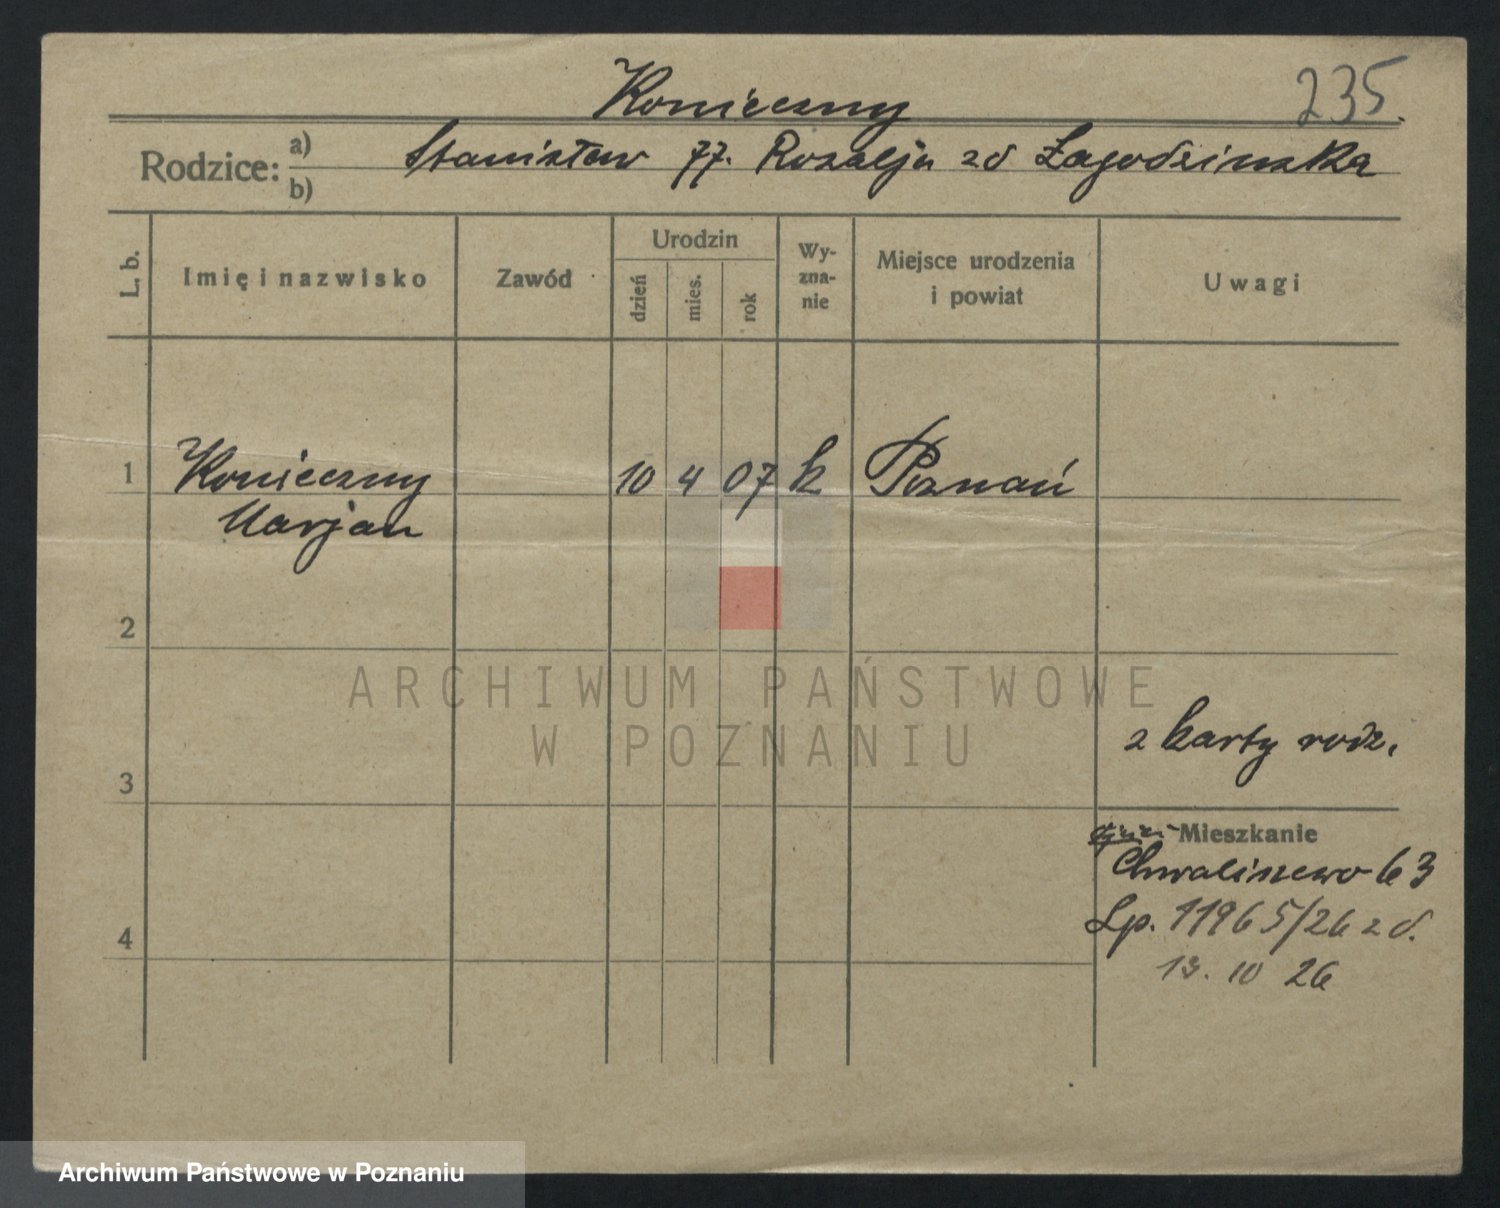 Konieczny 235.
Rodzice: a) b) Stanisław 77. Rozalja zd Łagodzinska
L. b. Imię i nazwisko Zawód Urodzin dzień mies. rok Wy-zna-nie Miejsce urodzenia i powiat Uwagi
1 Konieczny 10 4 07 k Poznań
Marjan
2
ARCHIWUM PAŃSTWOWE
W POZNANIU
z karty rodz.
3
Mieszkanie
Chwaliszewo 63
Lp. 11965/26 z d.
4
13. 10 26
Archiwum Państwowe w Poznaniu